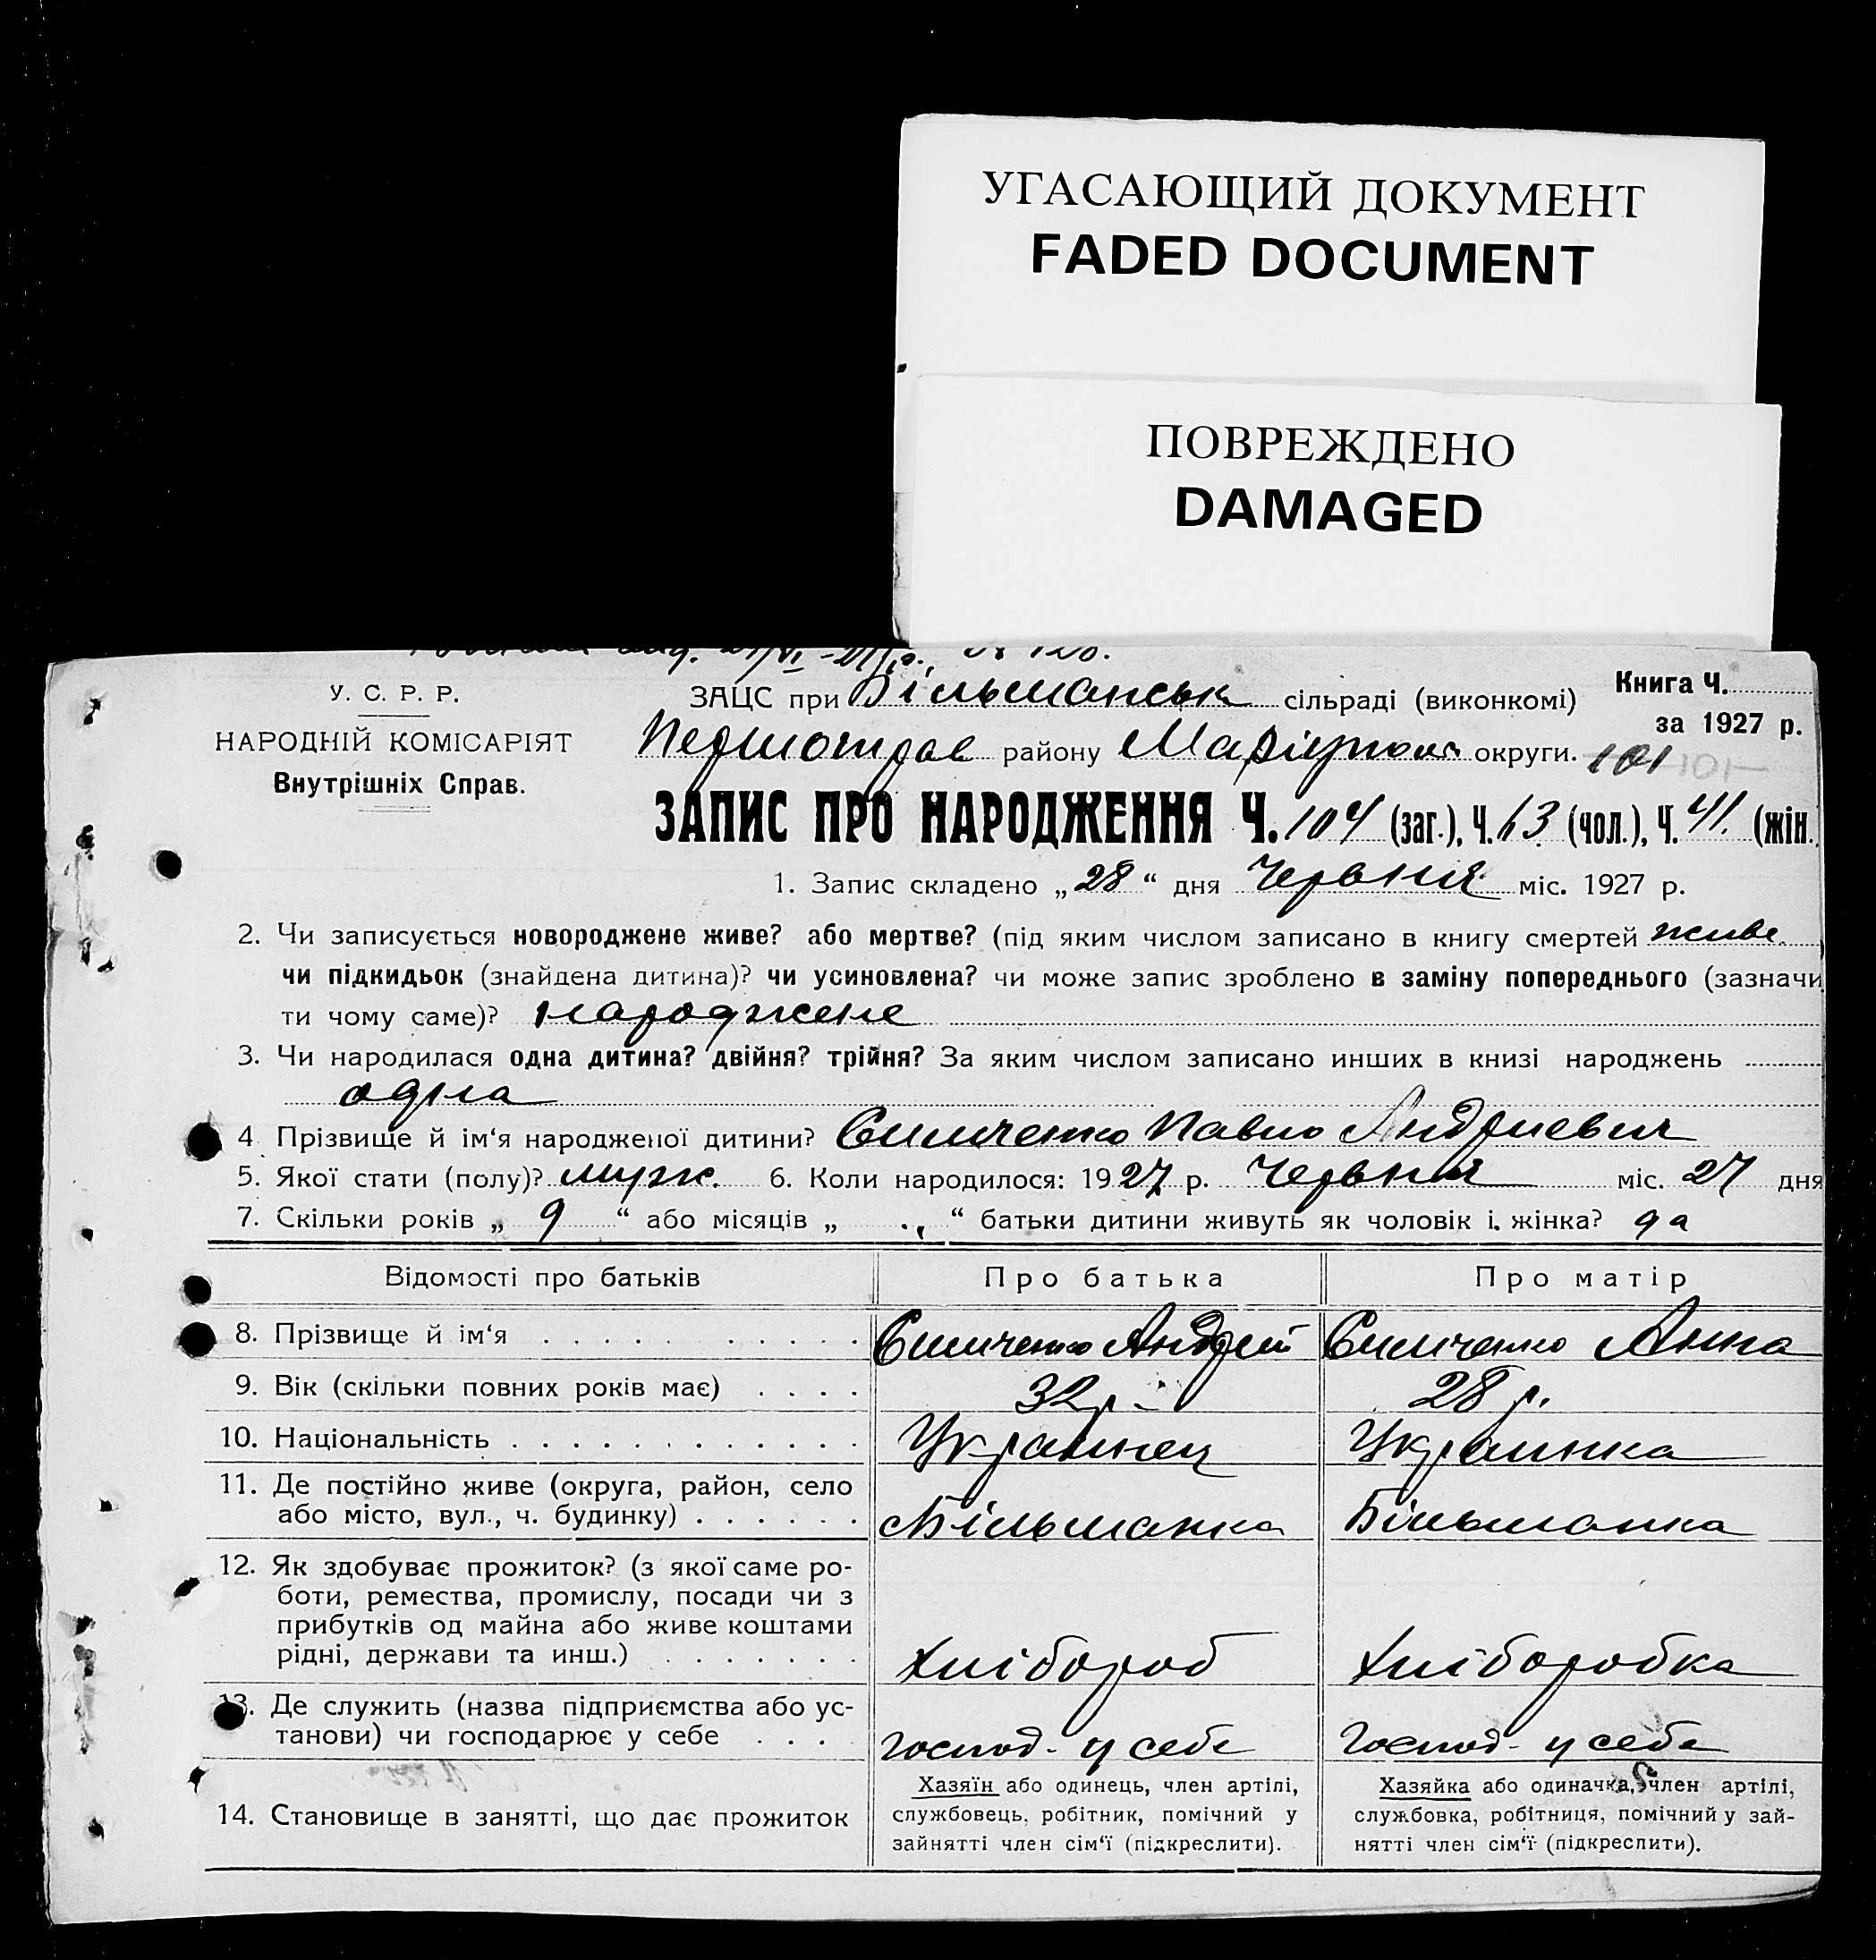 УГАСАЮЩИЙ ДОКУМЕНТ
FADED DOCUMENT
ПОВРЕЖДЕНО
DAMAGED
У. С. Р. Р.
НАРОДНІЙ КОМІСАРІЯТ
Внутрішніх Справ.
ЗАЦС при Більманськ сільраді (виконкомі)
Книга Ч.
за 1927 р.
Першотрав району Маріупол округи. 101 101
ЗАПИС ПРО НАРОДЖЕННЯ Ч. 104 (заг.), Ч. 63 (чол.), Ч. 41. (жін.
1. Запис складено „28“ дня Червня міс. 1927 р.
2. Чи записується новороджене живе? або мертве? (під яким числом записано в книгу смертей живе
чи підкидьок (знайдена дитина)? чи усиновлена? чи може запис зроблено в заміну попереднього (зазначи
ти чому саме)? народжене
3. Чи народилася одна дитина? двійня? трійня? За яким числом записано инших в книзі народжень
одна
4 Прізвище й ім‘я народженої дитини? Павло Андриевич
5. Якої стати (полу)? муж. 6. Коли народилося: 1927 р. Червня міс. 27 дня
7. Скільки років „ 9 “ або місяців „ “ батьки дитини живуть як чоловік і жінка? да
Відомості про батьків Про батька Про матір
8. Прізвище й ім‘я Андрей Анна
9. Вік (скільки повних років має) 32 р. 28 р.
10. Національність Украинец Украинка
11. Де постійно живе (округа, район, село
або місто, вул., ч. будинку) Більманка Більманка
12. Як здобуває прожиток? (з якої саме ро-
боти, ремества, промислу, посади чи з
прибутків од майна або живе коштами
рідні, держави та инш.) Хлібороб Хліборобка
13. Де служить (назва підприємства або ус-
танови) чи господарює у себе Господ- у себе Господ- у себе
14. Становище в занятті, що дає прожиток
Хазяїн або одинець, член артілі,
службовець, робітник, помічний у
зайнятті член сім‘ї (підкреслити).
Хазяйка або одиначка, член артілі,
службовка, робітниця, помічний у зай-
нятті член сім‘ї (підкреслити).